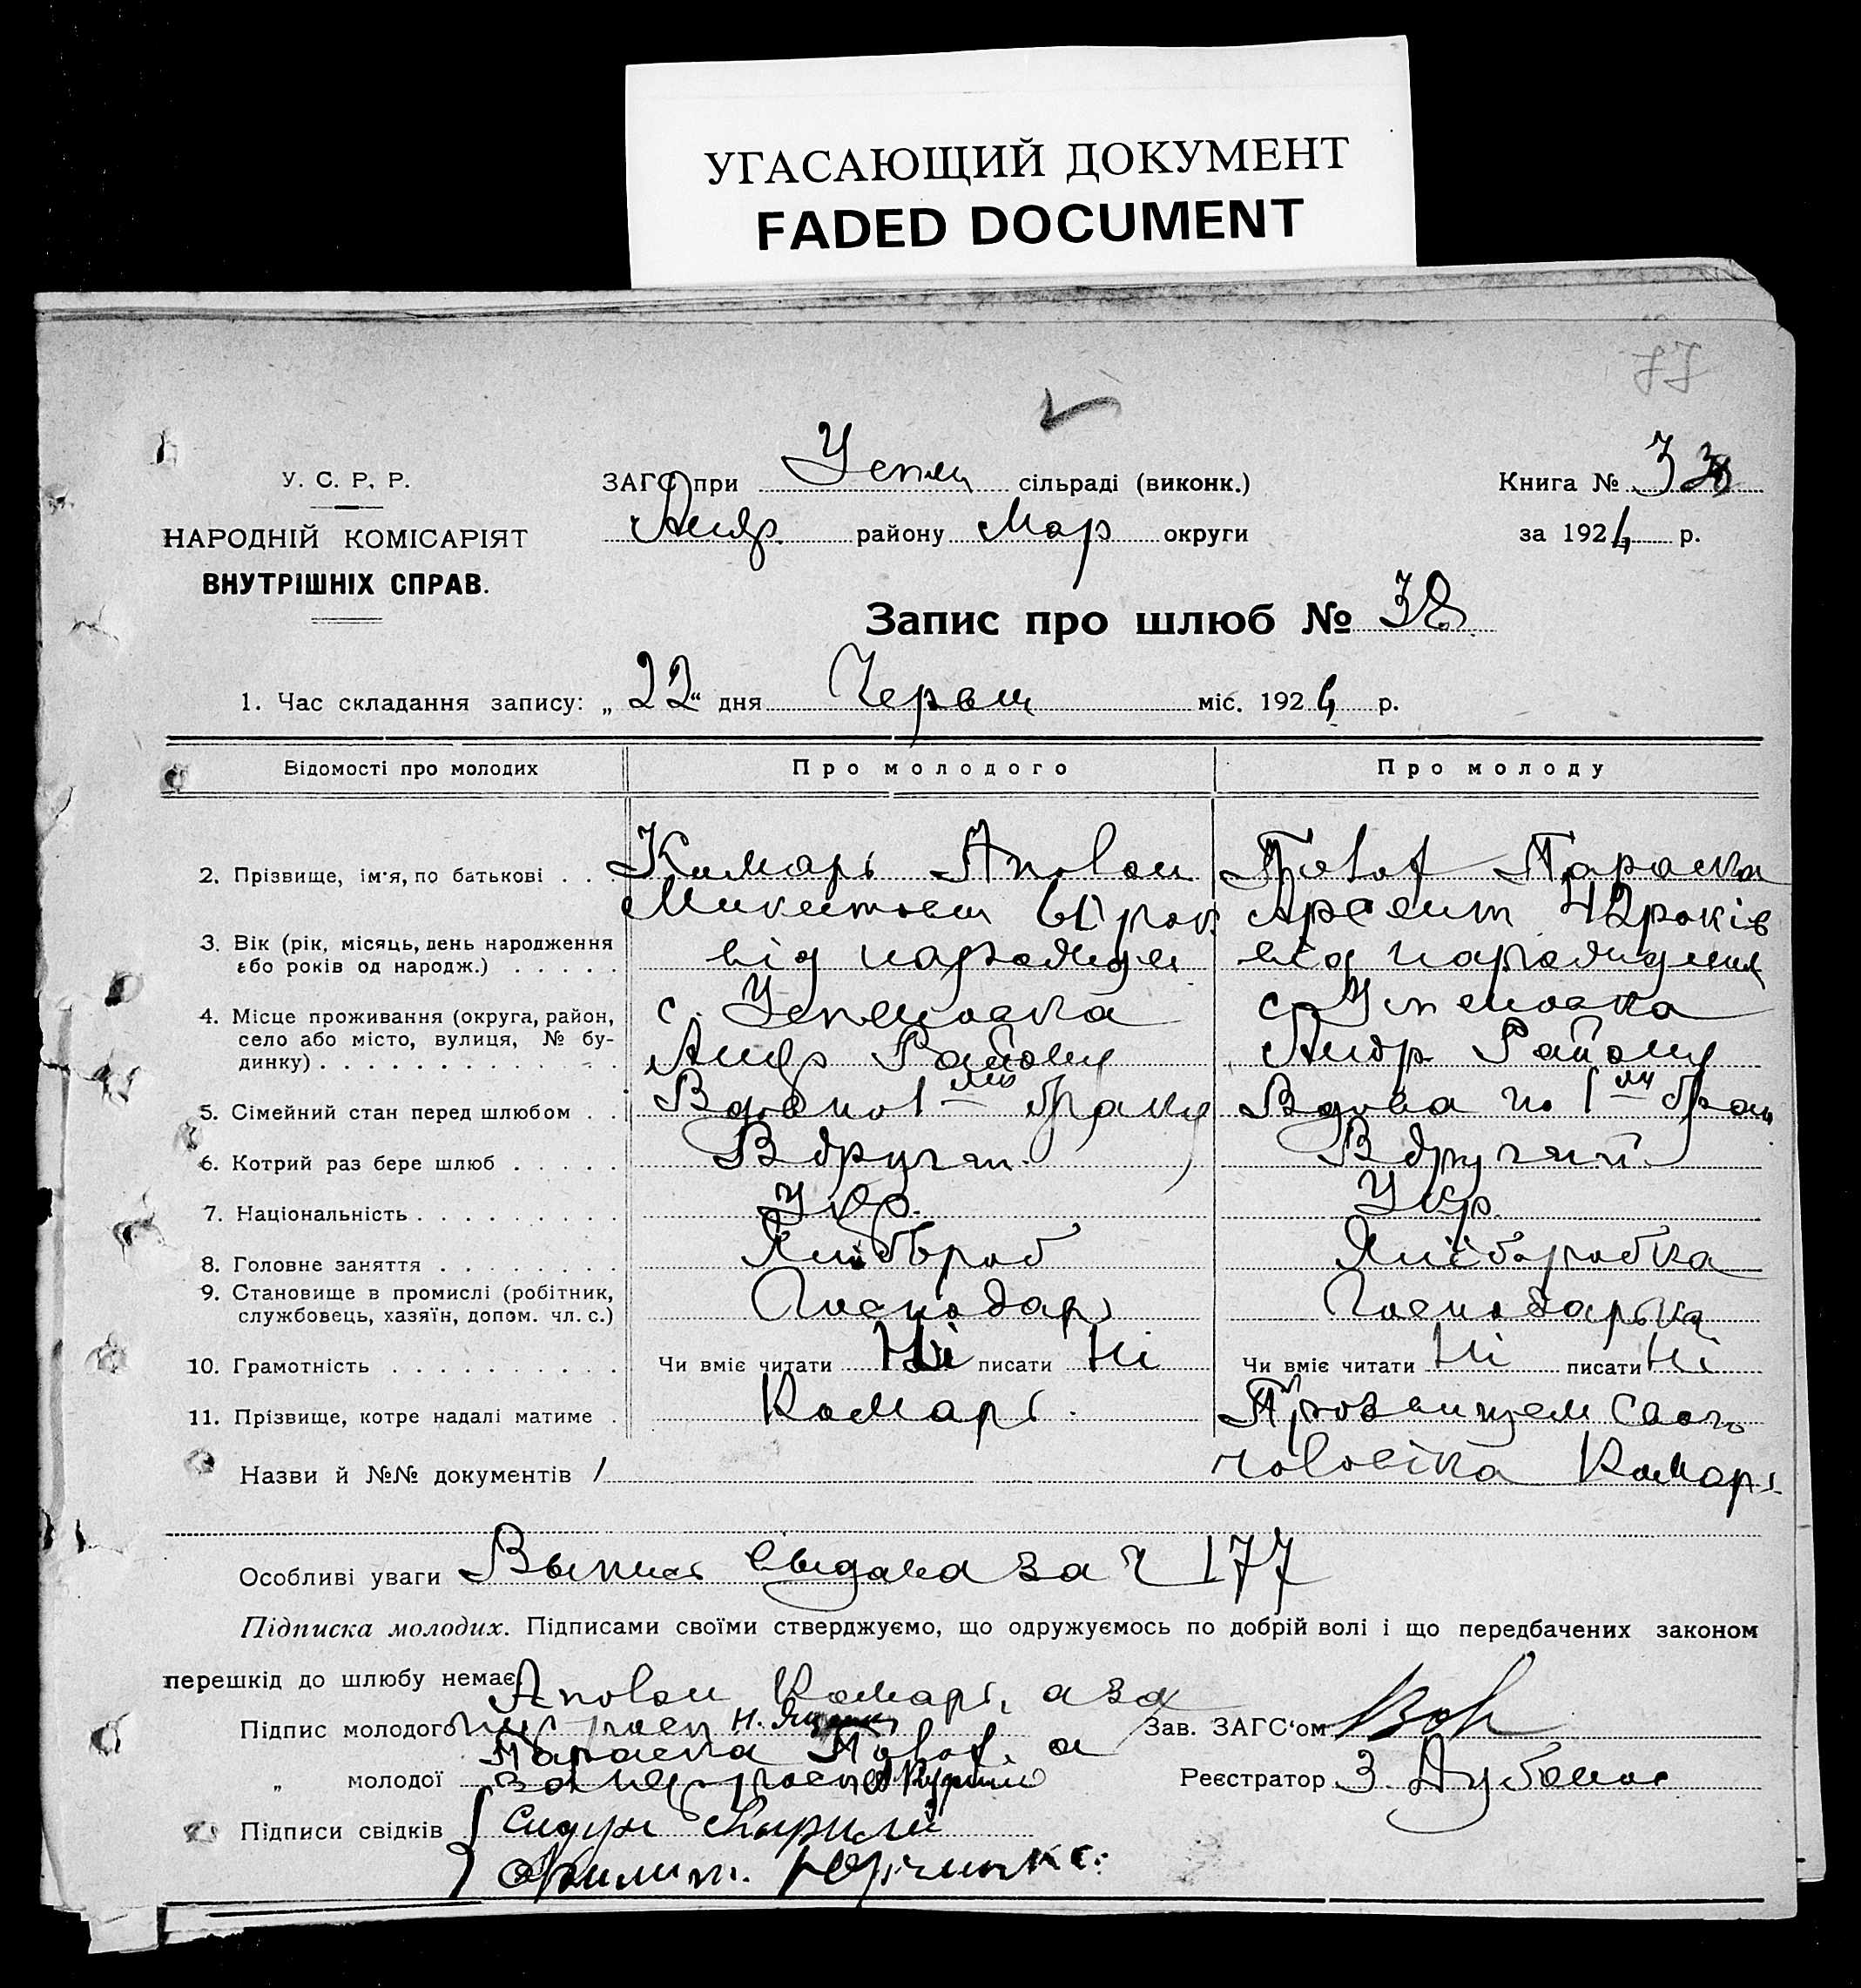 УГАСАЮЩИЙ ДОКУМЕНТ
FADED DOCUMENT
77
У. С. Р. Р.
НАРОДНІЙ КОМІСАРІЯТ
ВНУТРІШНІХ СПРАВ.
ЗАГС при Успен сільраді (виконк.)
Андр. району Мар округи
Книга № 3
за 1924 р.
Запис про шлюб № 38
1. Час складання запису: „22“ дня Червня міс. 1924 р.
Відомості про молодих
Про молодого
Про молоду
2. Прізвище, ім'я, по батькові
Комарь Аполон
Микитович
Параска
3. Вік (рік, місяць, день народження або років од народж.)
61 рок
від народжен
42 років
від народження
4. Місце проживання (округа, район, село або місто, вулиця, № будинку)
с. Успеновка
Андр Району
с. Успеновка
Андр. Району
5. Сімейний стан перед шлюбом
Вдов по 1му браку
Вдова по 1му брак
6. Котрий раз бере шлюб
Вдругий
Вдругий
7. Національність
Укр.
Укр.
8. Головне заняття
Хліббороб
Хліборобка
9. Становище в промислі (робітник, службовець, хазяїн, допом. чл. с.)
Господарь
Господарька
10. Грамотність
Чи вміє читати Ні писати Ні
Чи вміє читати Ні писати Ні
11. Прізвище, котре надалі матиме
Комарь
Прозвищем свого
чоловіка Комарь
Назви й №№ документів
Особливі уваги Выпись выдана за ч 177
Підписка молодих. Підписами своїми стверджуємо, що одружуємось по добрій волі і що передбачених законом
перешкід до шлюбу немає
Аполон Комарь, а за
Підпис молодого
Зав. ЗАГС'ом
Параска
„ молодої
Реєстратор З
Підписи свідків